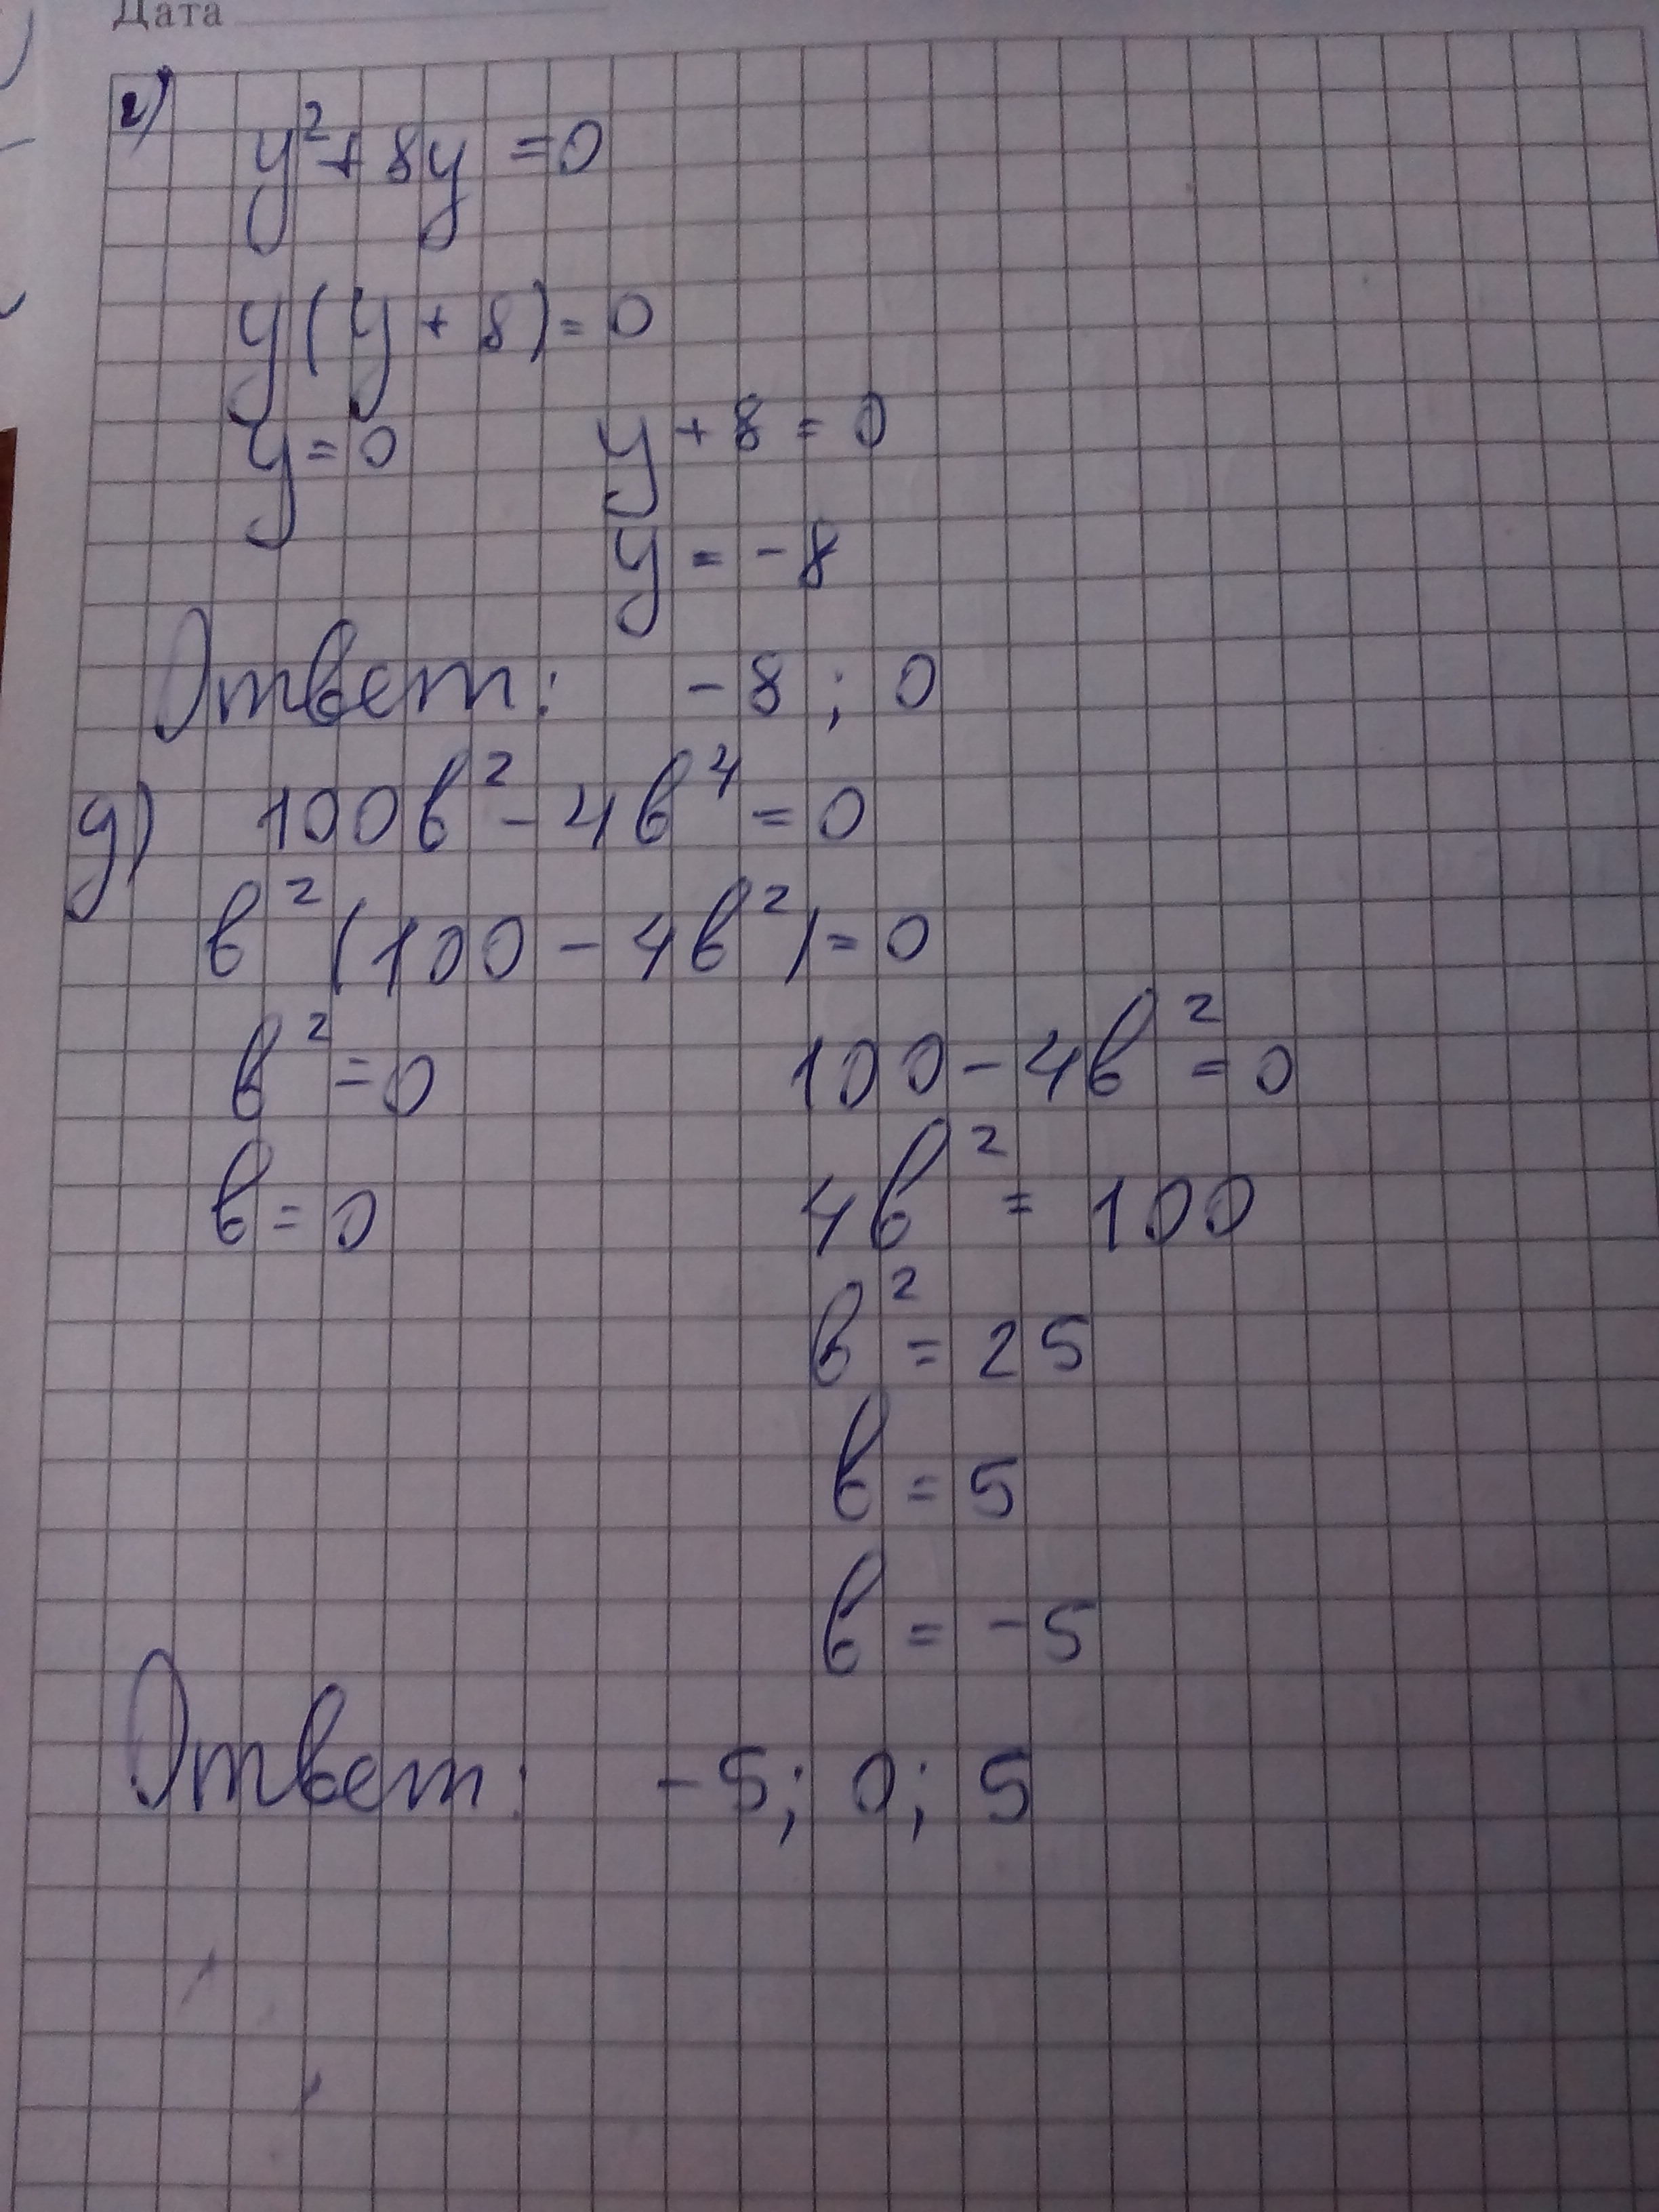 Дата
г) y² + 8y = 0
y(y + 8) = 0
y = 0 y + 8 = 0
y = -8
Ответ: -8; 0
д) 100в² - 4в⁴ = 0
в²(100 - 4в²) = 0
в² = 0 100 - 4в² = 0
в = 0 4в² = 100
в² = 25
в = 5
в = -5
Ответ: -5; 0; 5